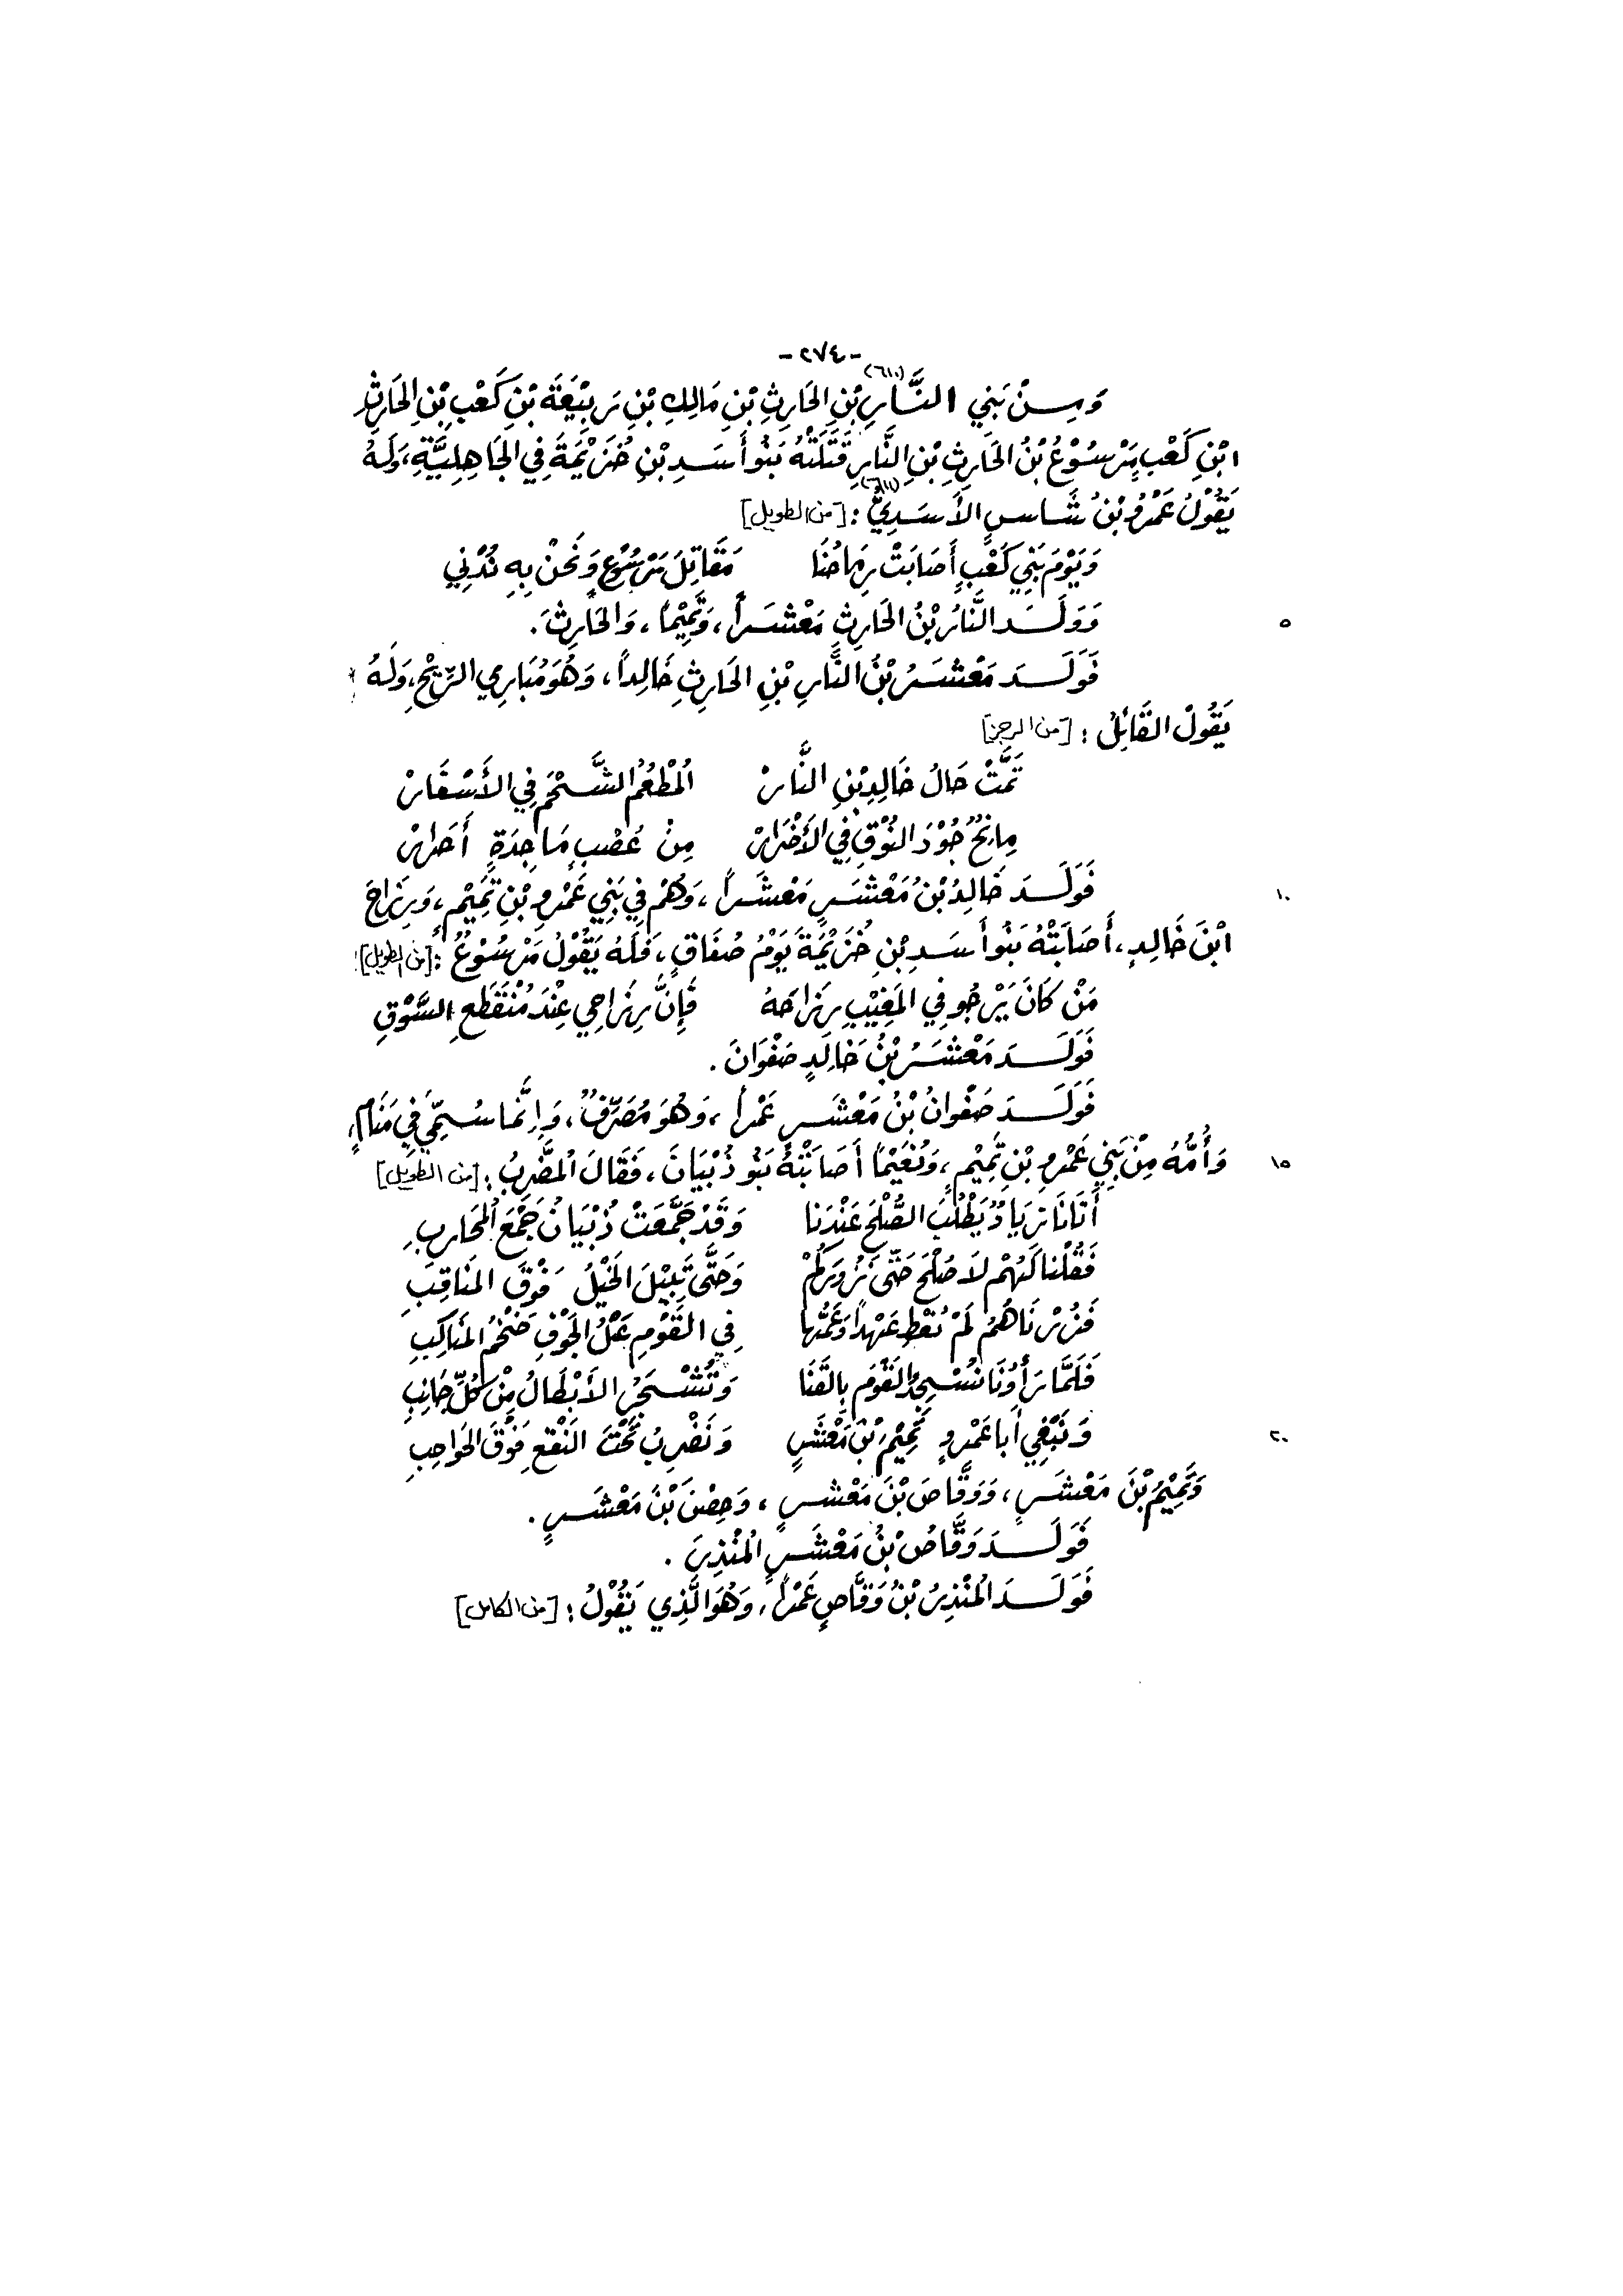 -٢٧٤-
وَمِنْ بَنِي النَّارِ(٦١٠) بْنِ الحَارِثِ بْنِ مَالِكِ بْنِ رَبِيْعَةَ بْنِ كَعْبِ بْنِ الحَارِثِ
ابْنِ كَعْبٍ مَرْسُوْعُ بْنُ الحَارِثِ بْنِ النَّارِ قَتَلَتْهُ بَنُو أَسَدِ بْنِ خُزَيْمَةَ فِي الجَاهِلِيَّةِ، وَلَهُ
يَقُوْلُ عَمْرُو بْنُ شَاسٍ الأَسَدِيُّ(٦١١): [من الطويل]
وَيَوْمَ بَنِي كَعْبٍ أَصَابَتْ رِمَاحُنَا مَقَاتِلَ مَرْسُوْعٍ وَنَحْنُ بِهِ نُدْنِي
٥ وَوَلَدَ النَّارُ بْنُ الحَارِثِ مَعْشَراً، وَتَمِيْماً، وَالحَارِثَ.
فَوَلَدَ مَعْشَرُ بْنُ النَّارِ بْنِ الحَارِثِ خَالِداً، وَهُوَ مُبَارِي الرِّيْحِ، وَلَهُ
يَقُوْلُ القَائِلُ: [من الرجز]
تَمَّتْ حَالُ خَالِدِ بْنِ النَّارْ المُطْعُمُ الشَّحْمَ فِي الأَسْفَارْ
مِانِحٌ جُوْدَ النُّوْقِ فِي الأَخْرَارْ مِنْ عُصْبٍ مَاجِدَةٍ أَحْرَارْ
١٠ فَوَلَدَ خَالِدُ بْنُ مَعْشَرٍ مَعْشَراً، وَهُمْ فِي بَنِي عَمْرِو بْنِ تَمِيْمٍ، وَرِزَاحَ
ابْنَ خَالِدٍ، أَصَابَتْهُ بَنُو أَسَدِ بْنِ خُزَيْمَةَ يَوْمُ صُفَاقٍ، فَلَهُ يَقُوْلُ مَرْسُوْعُ: [من الطويل]
مَنْ كَانَ يَرْجُو فِي المَغِيْبِ رِزَاحَهُ فَإِنَّ رِزَاحِي عِنْدَ مُنْقَطَعِ السَّوْقِ
فَوَلَدَ مَعْشَرُ بْنُ خَالِدٍ صَفْوَانَ.
فَوَلَدَ صَفْوَانُ بْنُ مَعْشَرٍ عَمْراً، وَهُوَ مُصَرِّفٌ، وَإِنَّمَا سُمِّيَ فِي مَنَامٍ،
١٥ وَأُمُّهُ مِنْ بَنِي عَمْرِو بْنِ تَمِيْمٍ، وَنُعَيْماً أَصَابَتْهُ بَنُو ذُبْيَانَ، فَقَالَ المُضَّرِبُ: [من الطويل]
أَتَانَا زِيَادٌ يَطْلُبُ الصُّلْحَ عَنْدَنا وَقَدْ جَمَّعَتْ ذُبْيَانُ جَمْعَ المُحَارِبِ
فَقُلْنا لَهُمْ لاَ صُلْحَ حَتَّى نَزُورَكُمْ وَحَتَّى تَبِيْلَ الخَيْلُ فَوْقَ المَنَاقِبِ
فَزُرْنَاهُمُ لَمْ نُعْطِ عَهْداً وَعَمُّها فِي القَوْمِ عَبْلُ الجَوْفِ ضَخْمُ المَنَاكِبِ
فَلَمَّا رَأَوْنَا نَسْتَبِيحُ القَوْمَ بِالقَنَا وَتُشْتَجَرُ الأَبْطَالُ مِنْ كُلِّ جَانِبِ
٢٠ وَنَبْغِي أَبا عَمْرٍو تَمِيْمَ بْنَ مَعْشَرٍ وَنَضْرِبُ تَحْتَ النَقْعِ فَوْقَ الحَوَاجِبِ
وَتَمِيْمُ بْنَ مَعْشَرٍ، وَوَقَّاصَ بْنَ مَعْشَرٍ، وَحِصْنَ بْنَ مَعْشَرٍ.
فَوَلَدَ وَقَّاصُ بْنُ مَعْشَرٍ المُنْذِرَ.
فَوَلَدَ المُنْذِرُ بْنُ وَقَّاصٍ عَمْراً، وَهُوَ الَّذِي يَقُوْلُ: [من الكامل]